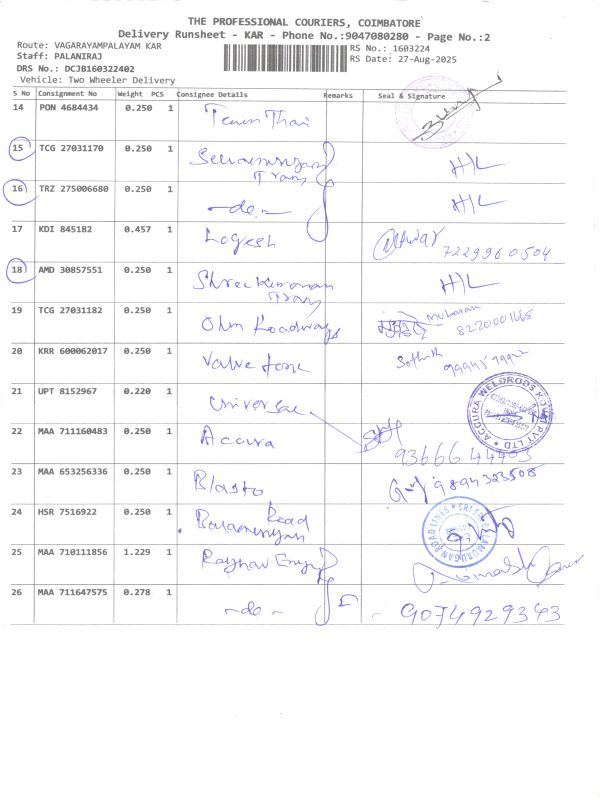 THE PROFESSIONAL COURIERS, COIMBATORE
Delivery Runsheet - KAR - Phone No.:9047080280 - Page No.:2
Route: VAGARAYAMPALAYAM KAR
RS No.: 1603224
Staff: PALANIRAJ
RS Date: 27-Aug-2025
DRS No.: DCJB160322402
Vehicle: Two Wheeler Delivery
S No Consignment No Weight PCS Consignee Details Remarks Seal & Signature
14 PON 4684434 0.250 1 Team Thai
15 TCG 27031170 0.250 1 Trans H/L
16 TRZ 275006680 0.250 1 -do- H/L
17 KDI 845182 0.457 1 Logesh 7229960504
18 AMD 30857551 0.250 1 Shree Kumaran Trans H/L
19 TCG 27031182 0.250 1 Ohm Roadways Mubarak 8220001665
20 KRR 600062017 0.250 1 Valve tone
21 UPT 8152967 0.220 1 Universal
22 MAA 711160483 0.250 1 Accura 9366644403
ACCURA WELDRODS KOVAI PVT LTD
23 MAA 653256336 0.250 1 Blasto 9894323508
24 HSR 7516922 0.250 1 Balamurugan Road
SRI BALAMURUGAN ROAD LINES
25 MAA 710111856 1.229 1 Raghav Engg
26 MAA 711647575 0.278 1 -do- - 9074929343